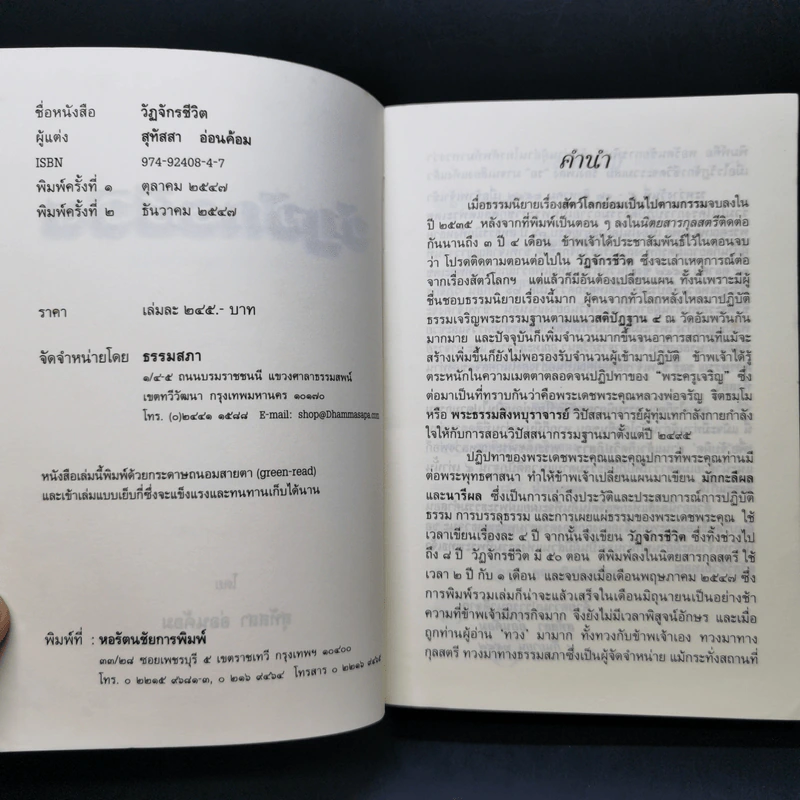 ชื่อหนังสือ วัฏจักรชีวิต
ผู้แต่ง สุทัสสา อ่อนค้อม
ISBN 974-92408-4-7
พิมพ์ครั้งที่ ๑ ตุลาคม ๒๕๔๗
พิมพ์ครั้งที่ ๒ ธันวาคม ๒๕๔๗
ราคา เล่มละ ๒๔๕.- บาท
จัดจำหน่ายโดย ธรรมสภา
๑/๔-๕ ถนนบรมราชชนนี แขวงศาลาธรรมสพน์
เขตทวีวัฒนา กรุงเทพมหานคร ๑๐๑๗๐
โทร. (๐)๒๔๔๑ ๑๕๘๘ E-mail: shop@Dhammasapa.com
หนังสือเล่มนี้พิมพ์ด้วยกระดาษถนอมสายตา (green-read)
และเข้าเล่มแบบเย็บกี่ซึ่งจะแข็งแรงและทนทานเก็บได้นาน
พิมพ์ที่ : หอรัตนชัยการพิมพ์
๓๓/๒๘ ซอยเพชรบุรี ๕ เขตราชเทวี กรุงเทพฯ ๑๐๔๐๐
โทร. ๐ ๒๒๑๕ ๙๖๘๑-๓, ๐ ๒๑๖ ๙๔๖๔ โทรสาร ๐ ๒๒๑๖ ๙๔๖๔
คำนำ
เมื่อธรรมนิยายเรื่องสัตว์โลกย่อมเป็นไปตามกรรมจบลงใน
ปี ๒๕๓๕ หลังจากที่พิมพ์เป็นตอน ๆ ลงในนิตยสารกุลสตรีติดต่อ
กันนานถึง ๓ ปี ๔ เดือน ข้าพเจ้าได้ประชาสัมพันธ์ไว้ในตอนจบ
ว่า โปรดติดตามตอนต่อไปใน วัฏจักรชีวิต ซึ่งจะเล่าเหตุการณ์ต่อ
จากเรื่องสัตว์โลกฯ แต่แล้วก็มีอันต้องเปลี่ยนแผน ทั้งนี้เพราะมีผู้
ชื่นชอบธรรมนิยายเรื่องนี้มาก ผู้คนจากทั่วโลกหลั่งไหลมาปฏิบัติ
ธรรมเจริญพระกรรมฐานตามแนวสติปัฏฐาน ๔ ณ วัดอัมพวันกัน
มากมาย และปัจจุบันก็เพิ่มจำนวนมากขึ้นจนอาคารสถานที่แม้จะ
สร้างเพิ่มขึ้นก็ยังไม่พอรองรับจำนวนผู้เข้ามาปฏิบัติ ข้าพเจ้าได้รู้
ตระหนักในความเมตตาตลอดจนปฏิปทาของ "พระครูเจริญ" ซึ่ง
ต่อมาเป็นที่ทราบกันว่าคือพระเดชพระคุณหลวงพ่อจรัญ ฐิตธมฺโม
หรือ พระธรรมสิงหบุราจารย์ วิปัสสนาจารย์ผู้ทุ่มเทกำลังกายกำลัง
ใจให้กับการสอนวิปัสสนากรรมฐานมาตั้งแต่ปี ๒๔๙๕
ปฏิปทาของพระเดชพระคุณและคุณูปการที่พระคุณท่านมี
ต่อพระพุทธศาสนา ทำให้ข้าพเจ้าเปลี่ยนแผนมาเขียน มักกะลีผล
และนารีผล ซึ่งเป็นการเล่าถึงประวัติและประสบการณ์การปฏิบัติ
ธรรม การบรรลุธรรม และการเผยแผ่ธรรมของพระเดชพระคุณ ใช้
เวลาเขียนเรื่องละ ๔ ปี จากนั้นจึงเขียน วัฏจักรชีวิต ซึ่งทิ้งช่วงไป
ถึง ๘ ปี วัฏจักรชีวิต มี ๕๐ ตอน ตีพิมพ์ลงในนิตยสารกุลสตรี ใช้
เวลา ๒ ปี กับ ๑ เดือน และจบลงเมื่อเดือนพฤษภาคม ๒๕๔๗ ซึ่ง
การพิมพ์รวมเล่มก็น่าจะแล้วเสร็จในเดือนมิถุนายนเป็นอย่างช้า
ความที่ข้าพเจ้ามีภารกิจมาก จึงยังไม่มีเวลาพิสูจน์อักษร และเมื่อ
ถูกท่านผู้อ่าน 'ทวง' มามาก ทั้งทวงกับข้าพเจ้าเอง ทวงมาทาง
กุลสตรี ทวงมาทางธรรมสภาซึ่งเป็นผู้จัดจำหน่าย แม้กระทั่งสถานที่